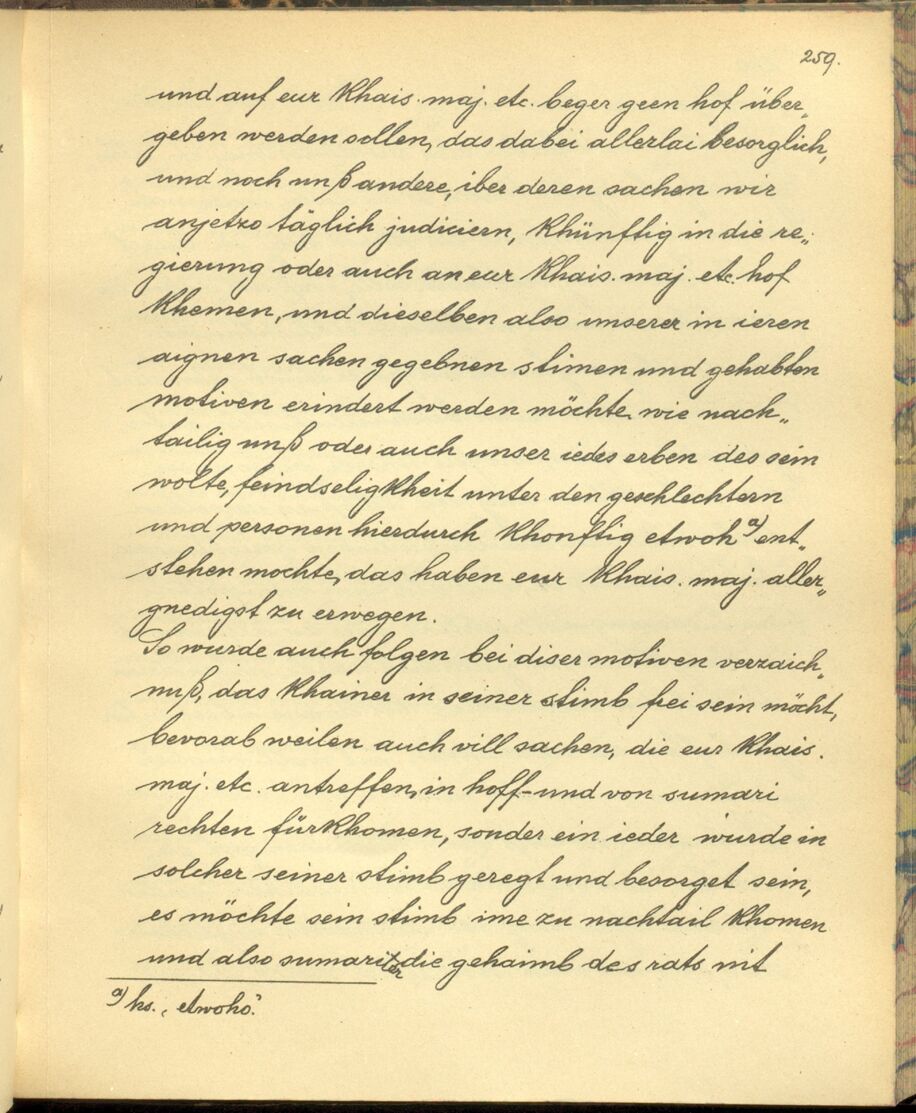 259.
und auf eur Khais. maj. etc. beger geen hof über„
geben werden sollen, das dabei allerlai besorglich,
und noch unß andere, iber deren sachen wir
anjetzo täglich judiciern, Khünfftig in die re„
gierung oder auch an eur Khais. maj. etc. hof
Khemen, und dieselben also unserer in ieren
aignen sachen gegebnen stimen und gehabten
motiven erindert werden möchte, wie nach„
tailig unß oder auch unser iedes erben des sein
wolte, feindseligKheit unter den geschlechtern
und personen hierdurch Khonfftig etwoh a) ent„
stehen mochte, das haben eur Khais. maj. aller„
gnedigst zu erwegen.
So wurde auch folgen bei diser motiven verzaich„
nuß, das Khainer in seiner stimb frei sein möcht,
bevorab weilen auch vill sachen, die eur Khais.
maj. etc. antreffen, in hoff- und von sumari
rechten fürKhomen, sonder ein ieder wurde in
solcher seiner stimb geregt und besorget sein,
es möchte sein stimb ime zu nachtail Khomen
und also sumariter die gehaimb des rats nit
a) hs. „etwoho“.